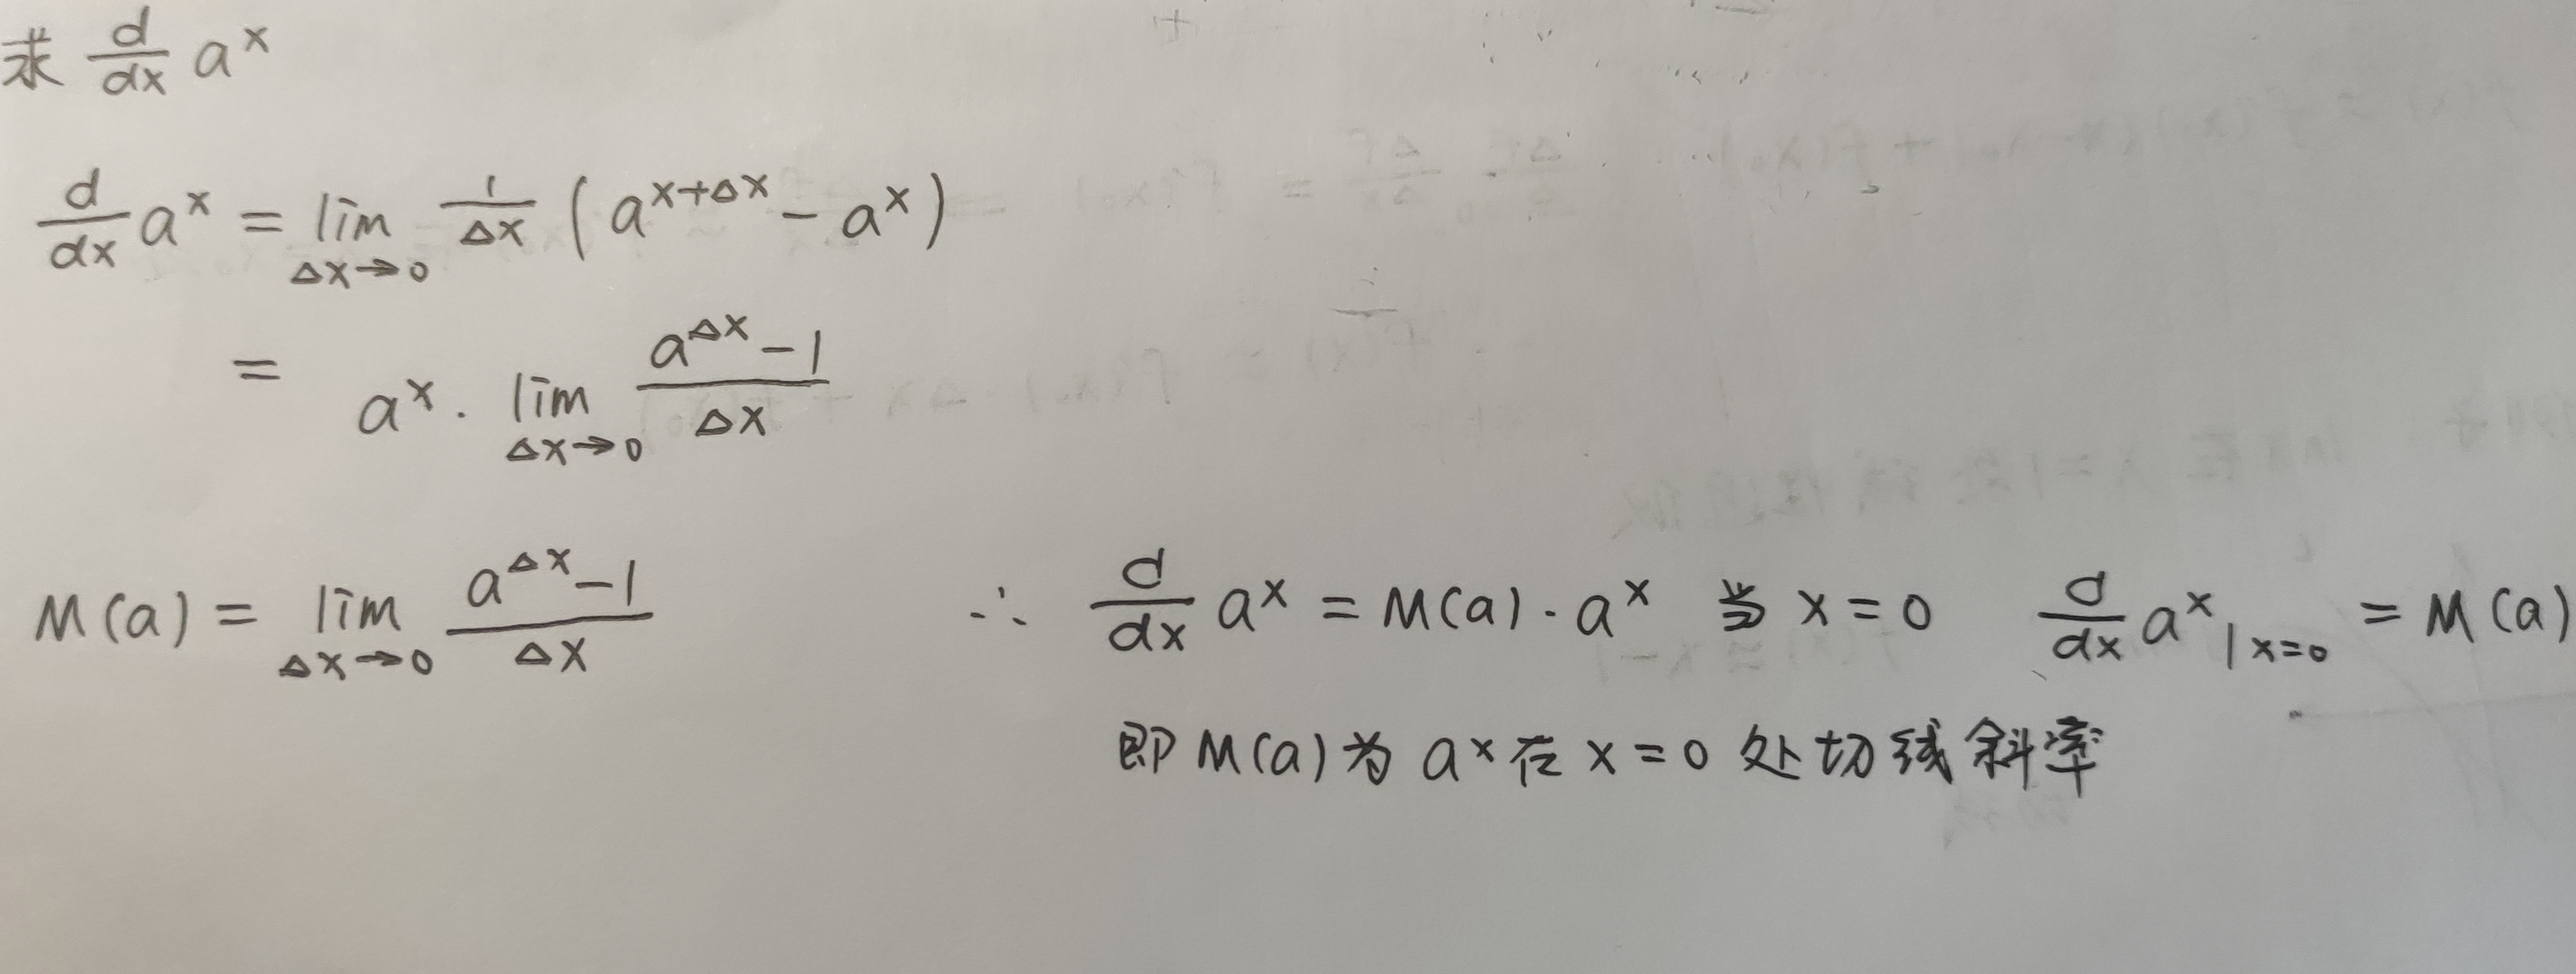 求 d/dx a^x
d/dx a^x = lim_{Δx→0} 1/Δx (a^{x+Δx} - a^x)
= a^x · lim_{Δx→0} (a^{Δx} - 1)/Δx
M(a) = lim_{Δx→0} (a^{Δx} - 1)/Δx ∴ d/dx a^x = M(a) · a^x 当 x = 0 d/dx a^x |_{x=0} = M(a)
即 M(a) 为 a^x 在 x = 0 处切线斜率